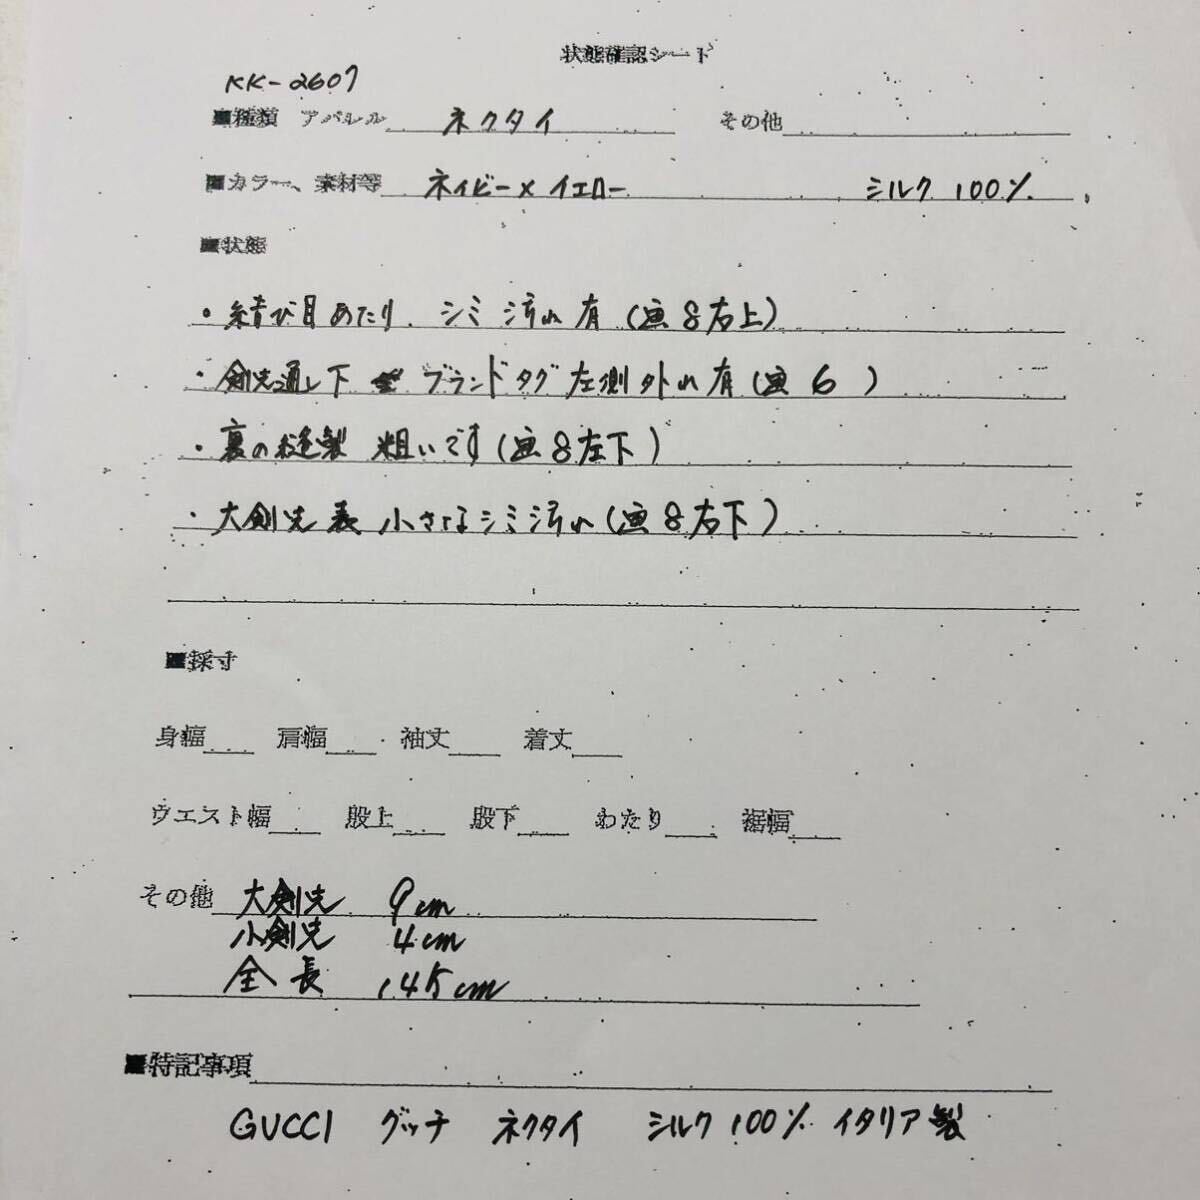 状態確認シート
KK-2607
■種類 アパレル ネクタイ その他
■カラー、素材等 ネイビー×イエロー シルク 100%
■状態
・結び目あたり、シミ汚れ有(画8右上)
・剣先通し下 ブランドタグ左側外れ有(画6 )
・裏の縫製 粗いです(画8左下)
・大剣先表 小さなシミ汚れ(画8右下)
■採寸
身幅 肩幅 袖丈 着丈
ウエスト幅 股上 股下 わたり 裾幅
その他 大剣先 9cm
小剣先 4cm
全長 145cm
■特記事項
GUCCI グッチ ネクタイ シルク100% イタリア製